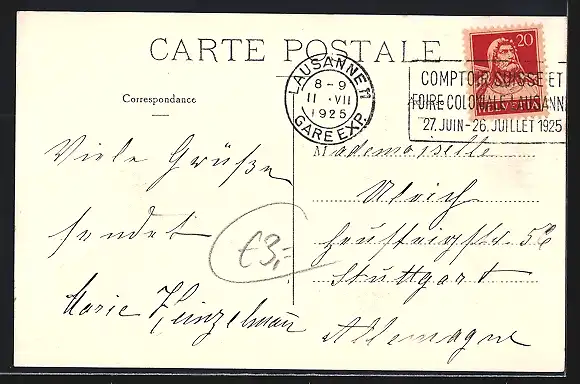 CARTE POSTALE
Correspondance
LAUSANNE 1
8-9
11 . VII
1925
GARE EXP.
20
HELVETIA
COMPTOIR SUISSE ET
FOIRE COLONIALE LAUSANNE
27. JUIN-26. JUILLET 1925
Viele Grüße
sendet
Marie Heinzelmann
£3,-
Mademoiselle
Ulrich
56
Stuttgart
Allemagne